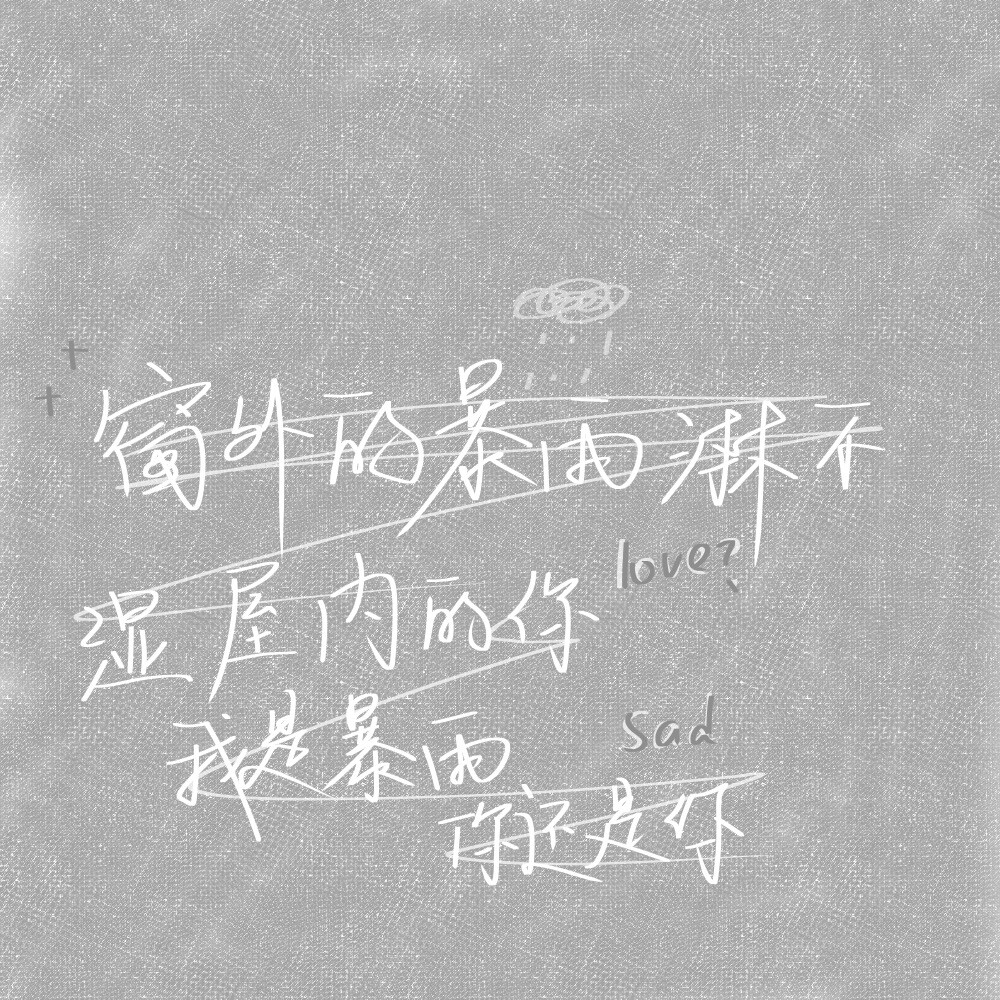 窗外的暴雨淋不
love?
湿屋内的你
我是暴雨
sad
你还是你